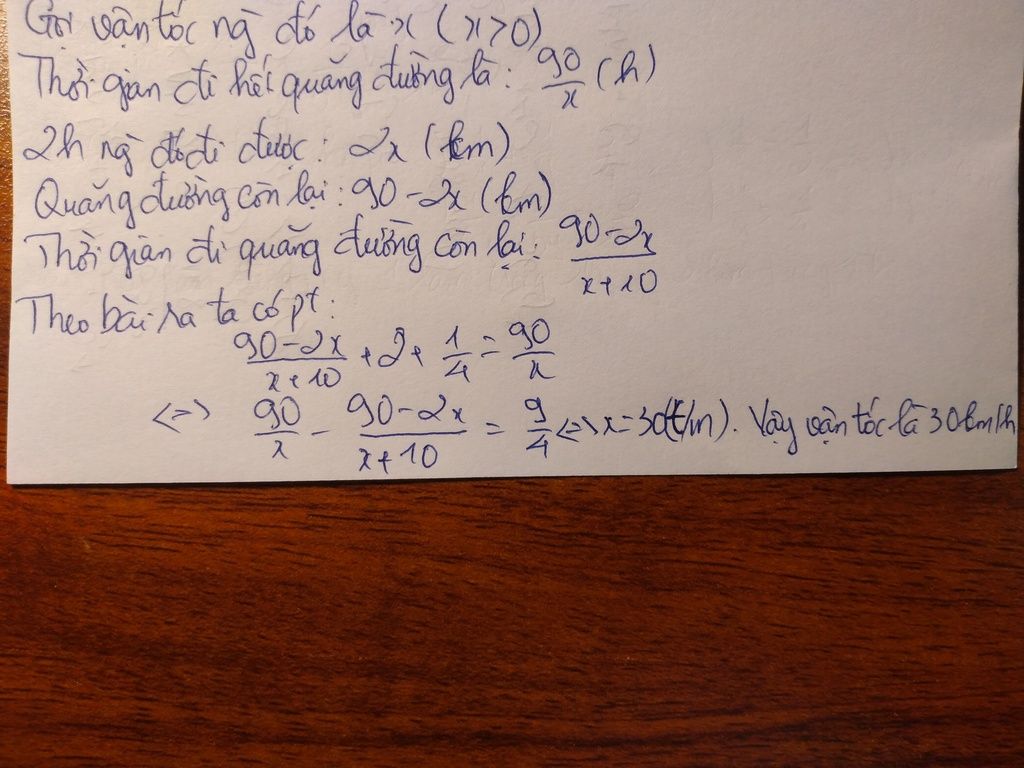 Gọi vận tốc ng đó là x (x>0)
Thời gian đi hết quãng đường là: 90/x (h)
2h ng đó đi được: 2x (km)
Quãng đường còn lại: 90-2x (km)
Thời gian đi quãng đường còn lại: 90-2x/x+10
Theo bài ra ta có pt:
90-2x/x+10 + 2 + 1/4 = 90/x
<=> 90/x - 90-2x/x+10 = 9/4 <=> x=30(t/m). Vậy vận tốc là 30km/h